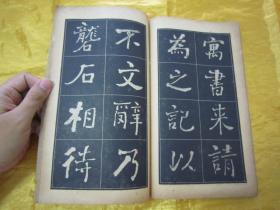 寓書来請
為之記以
不文辭乃
礱石相待